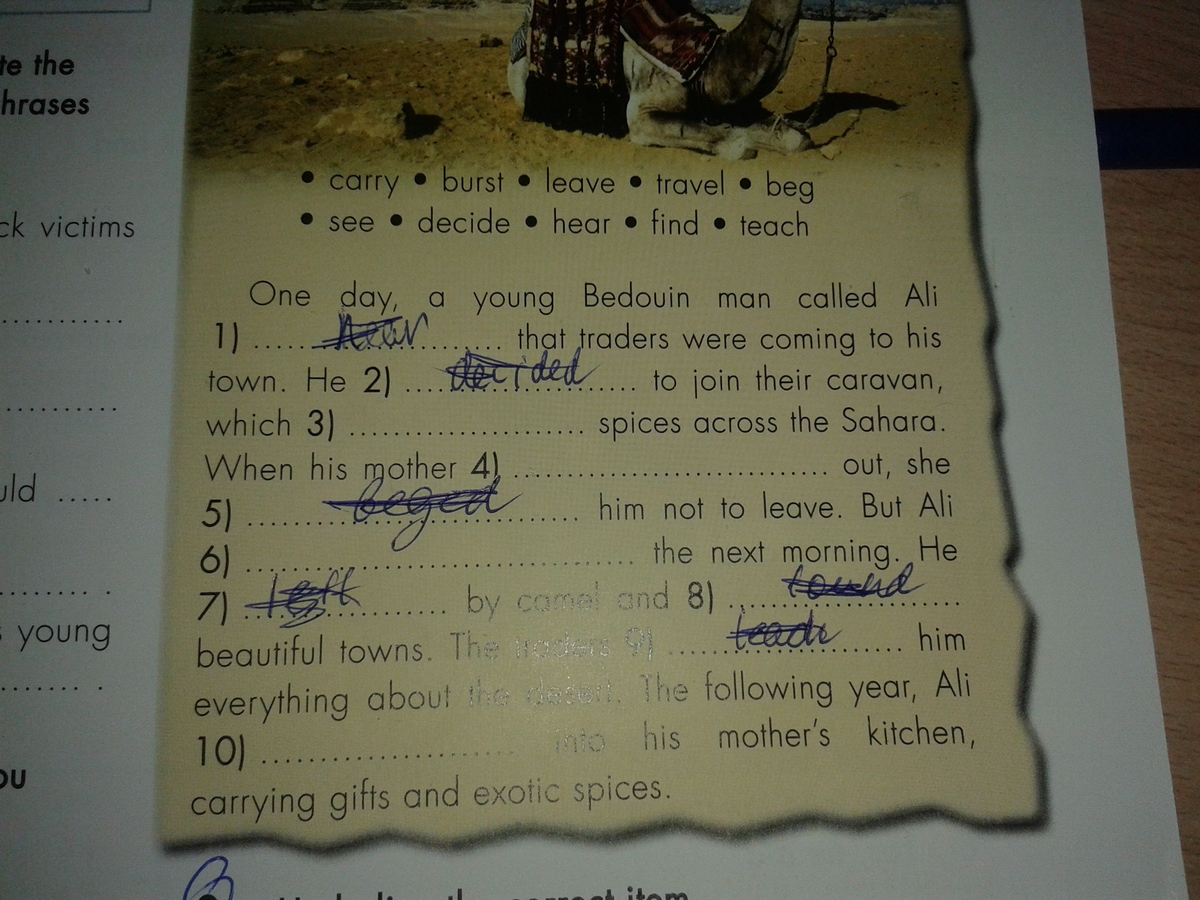 te the
hrases
ck victims
uld .....
s young
ou
• carry • burst • leave • travel • beg
• see • decide • hear • find • teach
One day, a young Bedouin man called Ali
1) .... hear .... that traders were coming to his
town. He 2) .... decided .... to join their caravan,
which 3) ........................ spices across the Sahara.
When his mother 4) ................................ out, she
5) .... beged .... him not to leave. But Ali
6) ........................................ the next morning. He
7) .... left .... by camel and 8) .... found ....
beautiful towns. The traders 9) .... teach .... him
everything about the desert. The following year, Ali
10) .......................... into his mother's kitchen,
carrying gifts and exotic spices.
the correct item